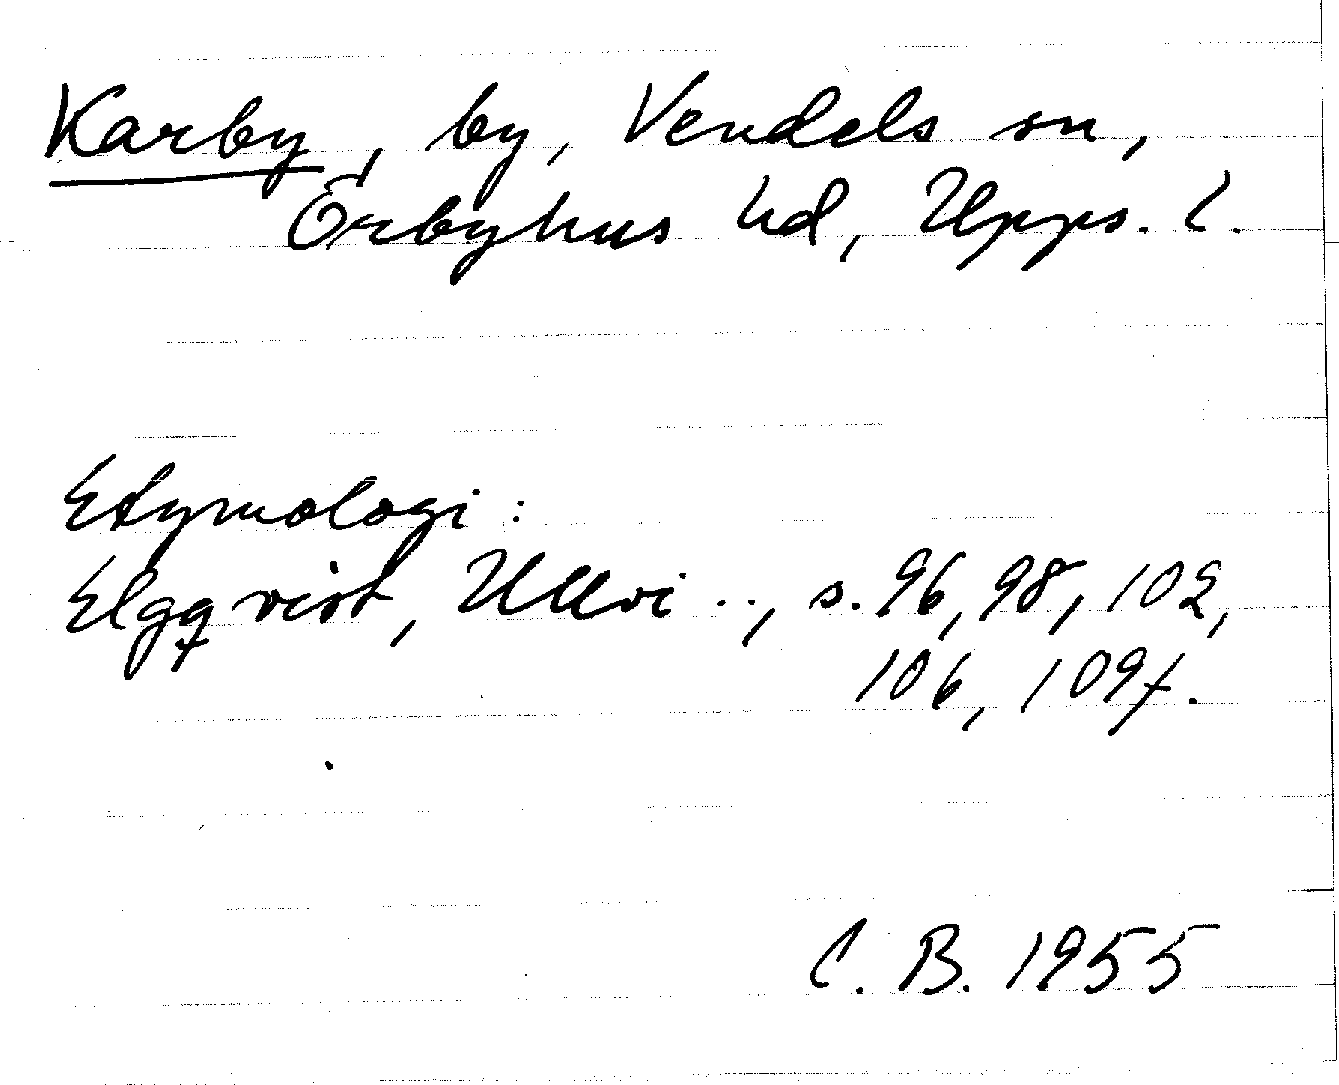 Karby, by, Vendels sn,
Örbyhus hd, Upps. l.
Etymologi:
Elgqvist, Ullvi .., s. 96, 98, 102,
106, 109f.
C. B. 1955